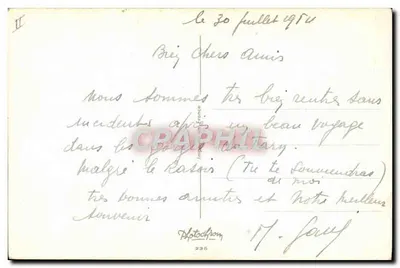 II
le 30 juillet 1954
Bien chers amis
Nous sommes très bien rentrés sans
incidents après un beau voyage
dans les
malgré le Rasoir (Tu te souviendras)
de moi
très bonnes amitiés et Notre meilleur
souvenir
CPAPHIL
Photochrom
M.